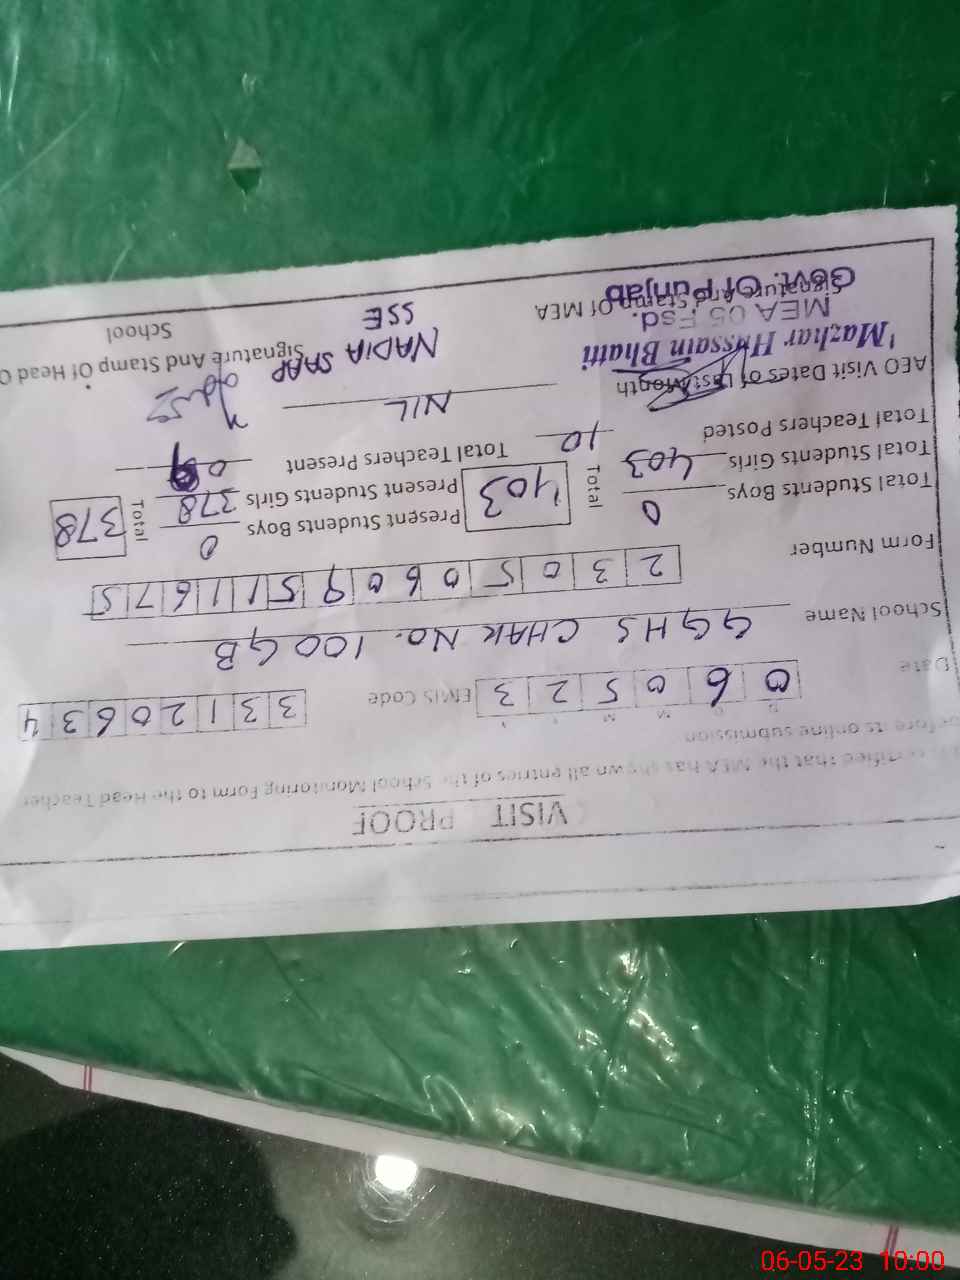 VISIT PROOF
certified that the MEA has shown all entries of the School Monitoring Form to the Head Teacher
before its online submission
Date 060523 EMIS Code 33120634
School Name GGHS CHAK No. 100 GB
Form Number 23050609511675
Total Students Boys 0 Present Students Boys 0
Total Students Girls 403 Total 403 Present Students Girls 378 Total 378
Total Teachers Posted 10 Total Teachers Present 09
AEO Visit Dates of Last Month NIL
Mazhar Hussain Bhatti
MEA 05 Fsd.
Govt. Of Punjab
NADIA
SSE
Signature And Stamp Of MEA Signature And Stamp Of Head O
School
06-05-23 10:00